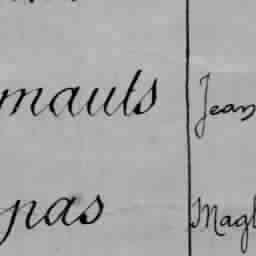 mauts Jean
pas Magl